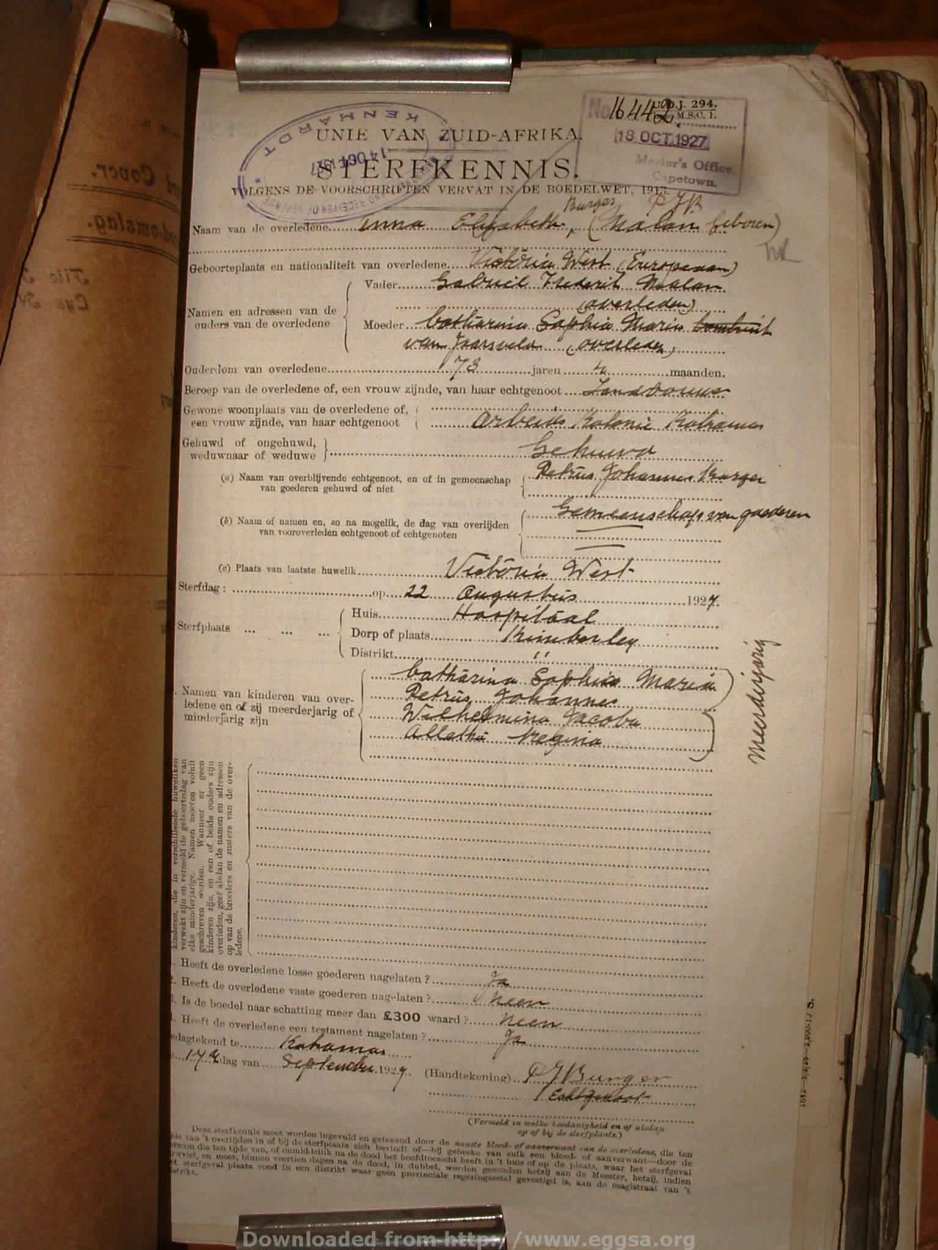 No 16442
U.D.J. 294.
M.S.C. 1.
18 OCT. 1927
Master's Office,
Capetown.
KENHARDT
14 OCT 1927
UNIE VAN ZUID-AFRIKA.
STERFKENNIS.
VOLGENS DE VOORSCHRIFTEN VERVAT IN DE BOEDELWET, 1913.
Burger PJB
Naam van de overledene Anna Elizabeth, (Malan geboren)
Geboorteplaats en nationaliteit van overledene Victoria West (Europeaan)
Namen en adressen van de ouders van de overledene
Vader Gabriel Frederik Malan
(overleden)
Moeder Catharina Sophia Maria
van Jaarsveld (overleden)
Ouderdom van overledene 73 jaren 4 maanden.
Beroep van de overledene of, een vrouw zijnde, van haar echtgenoot Landbouwer
Gewone woonplaats van de overledene of, een vrouw zijnde, van haar echtgenoot
Arbeids Kolonie Kakamas
Gehuwd of ongehuwd, weduwnaar of weduwe Gehuwd
(a) Naam van overblijvende echtgenoot, en of in gemeenschap van goederen gehuwd of niet
Petrus Johannes Burger
Gemeenschap van goederen
(b) Naam of namen en, so na mogelik, de dag van overlijden van vooroverleden echtgenoot of echtgenoten
(c) Plaats van laatste huwelik Victoria West
Sterfdag: op 22 Augustus 1927.
Sterfplaats
Huis Hospitaal
Dorp of plaats Kimberley
Distrikt "
Namen van kinderen van overledene en of zij meerderjarig of minderjarig zijn
Catharina Sophia Maria
Petrus Johannes
Wilhelmina Jacoba
Alletha Regina
Meerderjarig
kinderen, die in verschillende huweliken
verwekt zijn en vermeld de geboortedag van
elke minderjarige. Namen moeten voluit
geschreven worden. Wanneer er geen
kinderen zijn, en een of beide ouders zijn
overleden, geef alsdan de namen en adressen
op van de broeders en zusters van de overledene.
Heeft de overledene losse goederen nagelaten? Ja
Heeft de overledene vaste goederen nagelaten? Neen
Is de boedel naar schatting meer dan £300 waard? Neen
Heeft de overledene een testament nagelaten? Ja
Kakamas
17de dag van September 1927. (Handtekening) PJBurger
Echtgenoot
(Vermeld in welke hoedanigheid en of aldan
op of bij de sterfplaats.)
Deze sterfkennis moet worden ingevuld en getekend door de naaste bloed- of aanverwant van de overledene, die ten
van 't overlijden in of bij de sterfplaats zich bevindt of—bij gebreke van zulk een bloed- of aanverwant—door de
persoon die ten tijde van, of onmiddellik na de dood het hoofdtoezicht heeft in 't huis of op de plaats, waar het sterfgeval
en moet, binnen veertien dagen na de dood, in dubbel, worden gezonden hetzij aan de Meester, hetzij, indien
't sterfgeval plaats vond in een distrikt waar geen provinciale regeringszetel gevestigd is, aan de magistraat van 't
distrikt.
Downloaded from http://www.eggsa.org